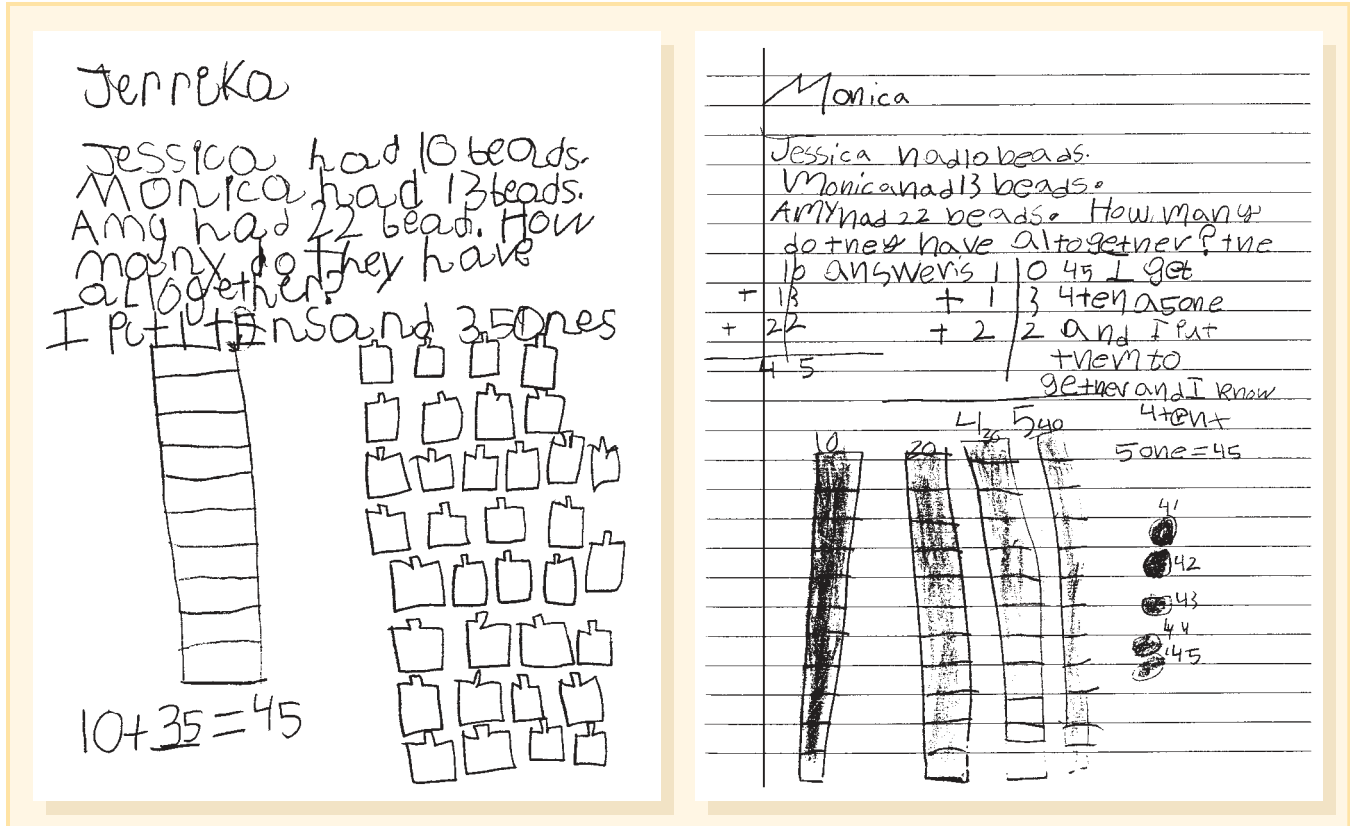 Jerrika
Jessica had 10 beads.
Monica had 13 beads.
Amy had 22 bead. How
many do they have
altogether?
I put 1 tens and 35 ones
10+35=45
Monica
Jessica had 10 beads.
Monica had 13 beads.
AMY had 22 beads. How many
do they have altogether? the
10 answer is 1 0 45 I get
+ 13 + 1 3 4 ten a 5 one
+ 22 + 2 2 and I Put
4 5 them to
gether and I know
4 5 4 ten +
10 20 40 5 one = 45
41
42
43
44
45